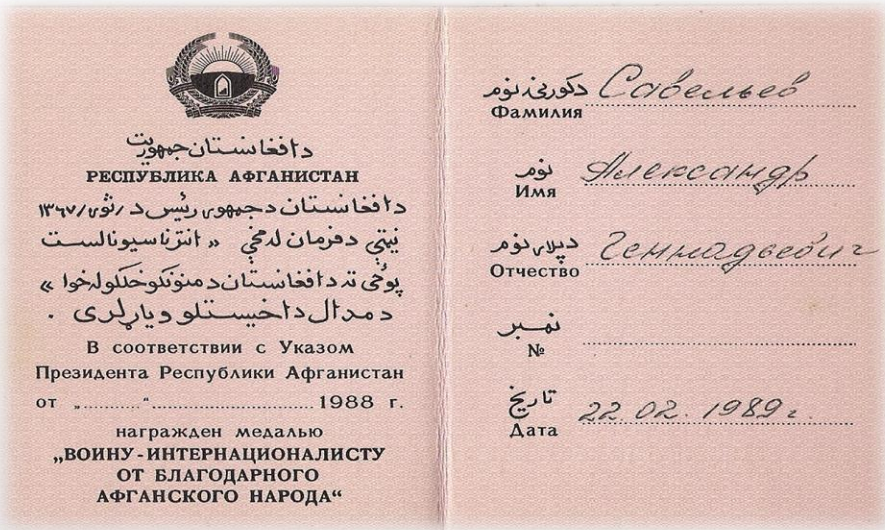 دافغانستان جمهوریت
РЕСПУБЛИКА АФГАНИСТАН
دافغانستان دجمهوری رئیس د /ثور/ ۱۳۶۷
نیټې دفرمان له مخې « انترناسیونالست
پوځی ته دافغانستان د منونکو خلکو له خوا »
د مدال د اخیستلو ویاړ لری .
В соответствии с Указом
Президента Республики Афганистан
от „............“........................ 1988 г.
награжден медалью
„ВОИНУ-ИНТЕРНАЦИОНАЛИСТУ
ОТ БЛАГОДАРНОГО
АФГАНСКОГО НАРОДА“
دکورنۍ نوم Савельев
Фамилия
نوم Александр
Имя
دپلار نوم Геннадьевич
Отчество
نمبر
№
تاریخ 22.02.1989 г.
Дата